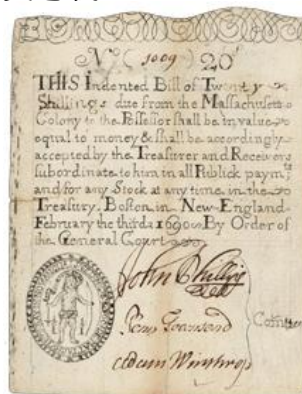 No ( 1009 ) 20s
THIS Indented Bill of Twenty
Shillings due from the Massachusets
Colony to the Possessor shall be in value
equal to money & shall be accordingly
accepted by the Treasurer and Receivers
subordinate to him in all Publick paymts
and for any Stock at any time in the
Treasury. Boston in New-England
February the third 1690 By Order of
the General Court
John Phillips
Penn Townsend
Adam Winthrop